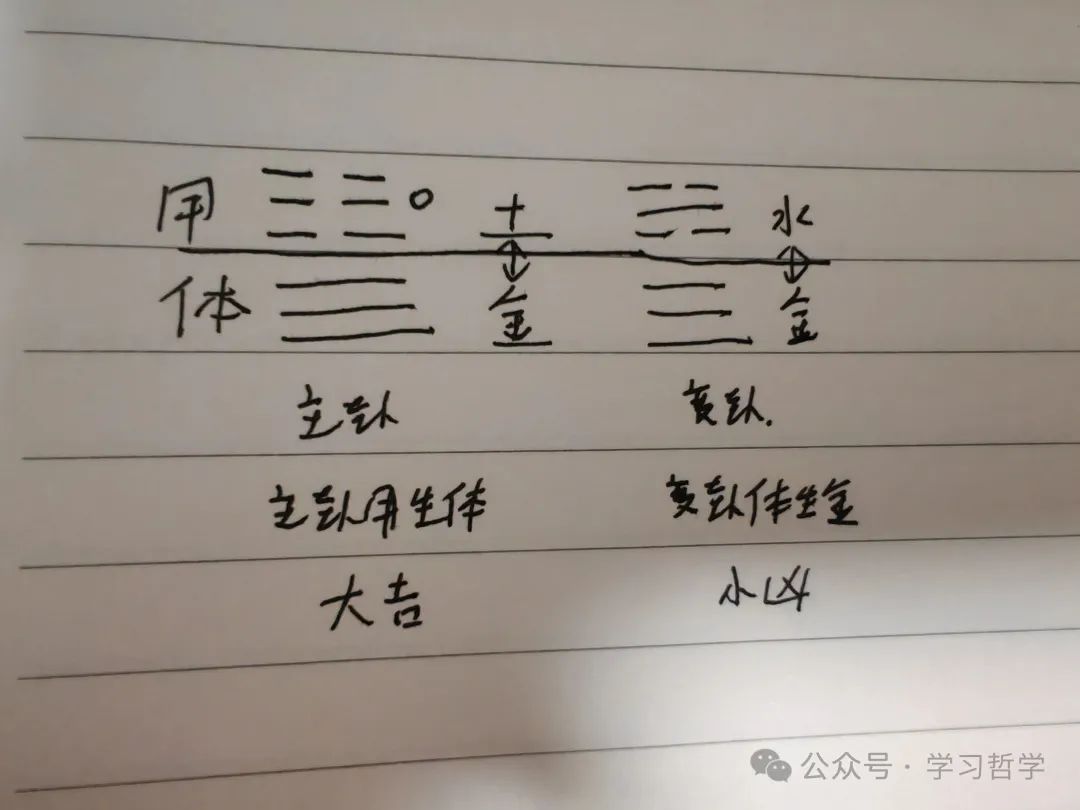 用 土 水
体 金 金
主卦 变卦.
主卦用生体 变卦体生金
大吉 小凶
公众号 · 学习哲学